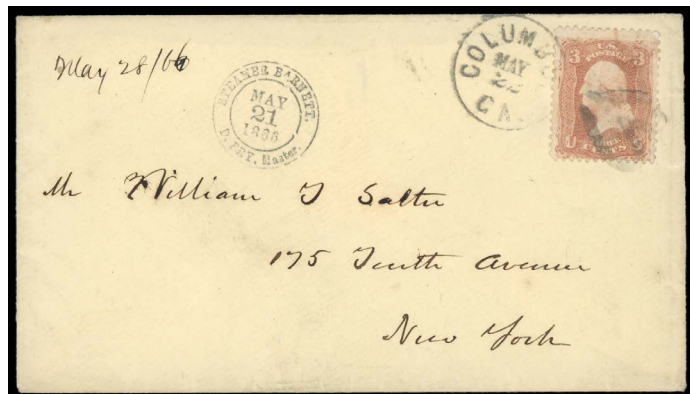 May 28/66
STEAMER BARNETT.
MAY
21
1866
D. FRY, Master.
COLUMBUS
MAY
22
GA.
3 U.S. 3
POSTAGE
U
CENTS
Mr William T Salter
175 Tenth Avenue
New York